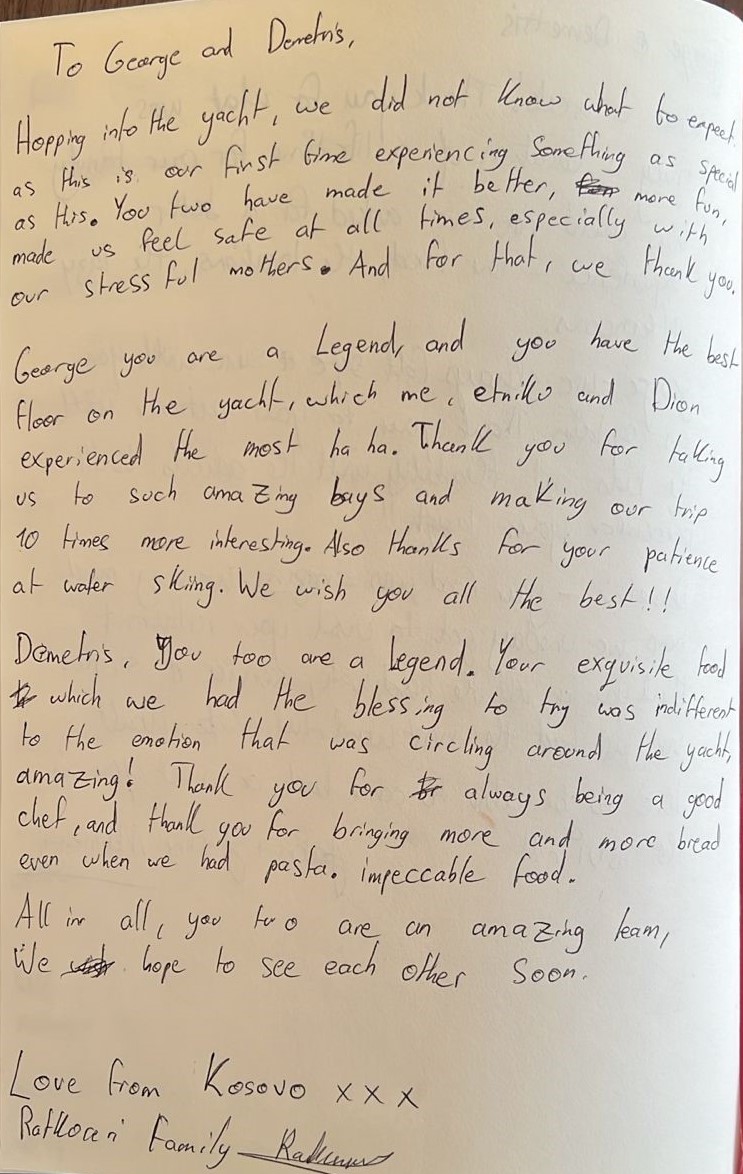 To George and Demetris,
Hopping into the yacht, we did not know what to expect
as this is our first time experiencing something as special
as this. You two have made it better, more fun,
made us feel safe at all times, especially with
our stressful mothers. And for that, we thank you.
George you are a Legend, and you have the best
floor on the yacht, which me, etniku and Dion
experienced the most ha ha. Thank you for taking
us to such amazing bays and making our trip
10 times more interesting. Also thanks for your patience
at water skiing. We wish you all the best!!
Demetris, You too are a legend. Your exquisite food
which we had the blessing to try was indifferent
to the emotion that was circling around the yacht,
amazing! Thank you for always being a good
chef, and thank you for bringing more and more bread
even when we had pasta. impeccable food.
All in all, you two are an amazing team,
We hope to see each other soon.
Love from Kosovo x x x
Family